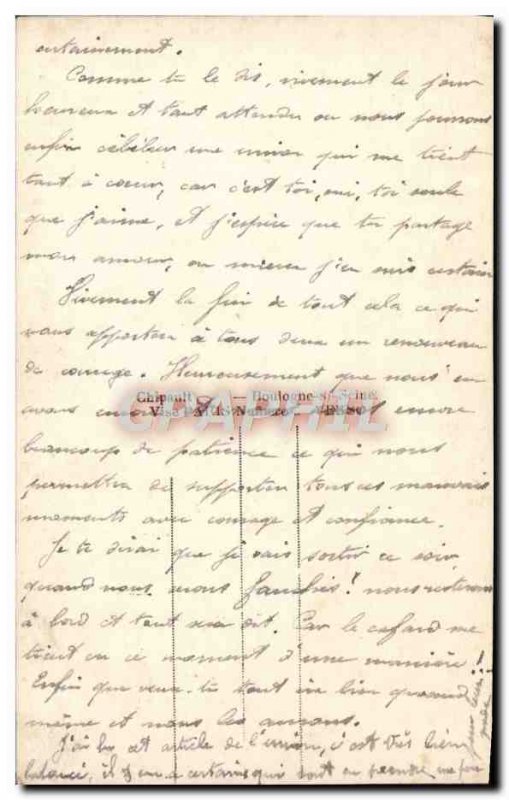 certainement.
Comme tu le dis, vivement le jour
heureux et tant attendu ou nous pourrons
enfin célébrer une union qui me tient
tant à coeur, car c'est toi, oui, toi seule
que j'aime, et j'espère que tu partage
mon amour, ou mieux j'en suis certain
Vivement la fin de tout cela ce qui
nous apportera à tous deux un renouveau
de courage. Heureusement que nous en
avons encore encore
Chipault Boulogne-s-Seine
Visé PARIS Numéros
CPAPHIL
beaucoup de patience ce qui nous
permettra de supporter tous ces mauvais
moments avec courage et confiance.
Je te dirai que je vais sortir ce soir,
quand nous nous resterons
à bord et tout sera dit. Car le cafard me
tient en ce moment d'une manière!!
Enfin que veux-tu tout ira bien quand
même et nous les aurons.
J'ai lu cet article de l'union, c'est très bien
il y en a certains qui